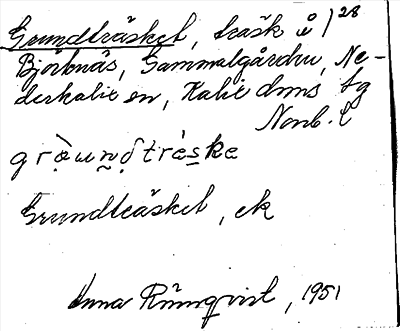 Grundträsket, träsk i 1/28
Björknäs, Gammelgården, Ne-
derkalix sn, Kalix dnms tg
Nonb. l
Grundträsket, ek
Anna Rönnqvist, 1951